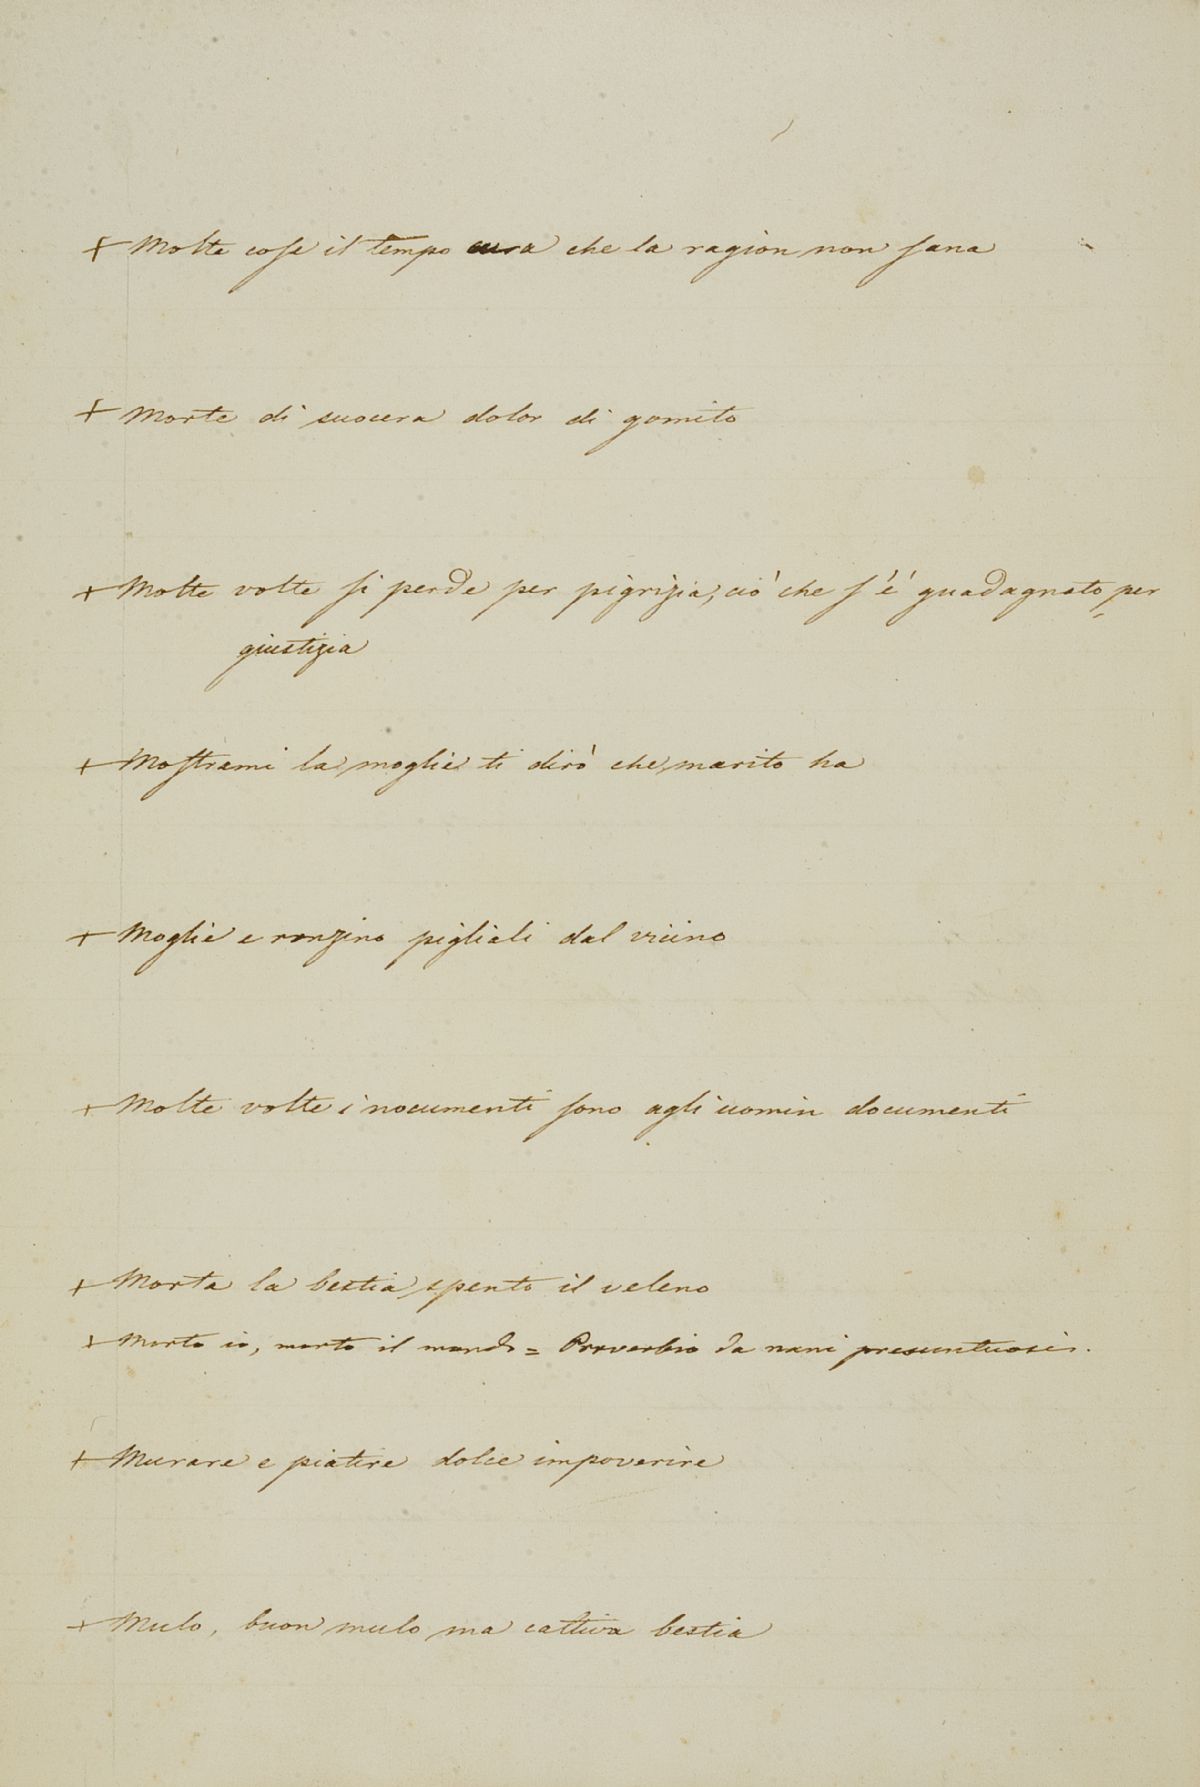 + Molte cose il tempo cura che la ragion non sana
+ Morte di suocera dolor di gomito
+ Molte volte si perde per pigrizia, ciò che s'è guadagnato per
giustizia
+ Mostrami la moglie ti dirò che marito ha
+ Moglie e ronzino pigliali dal vicino
+ Molte volte i nocumenti sono agli uomin documenti
+ Morta la bestia spento il veleno
+ Morto io, morto il mondo = Proverbio da nani presuntuosi.
+ Murare e piatire dolce impoverire
+ Mulo, buon mulo ma cattiva bestia